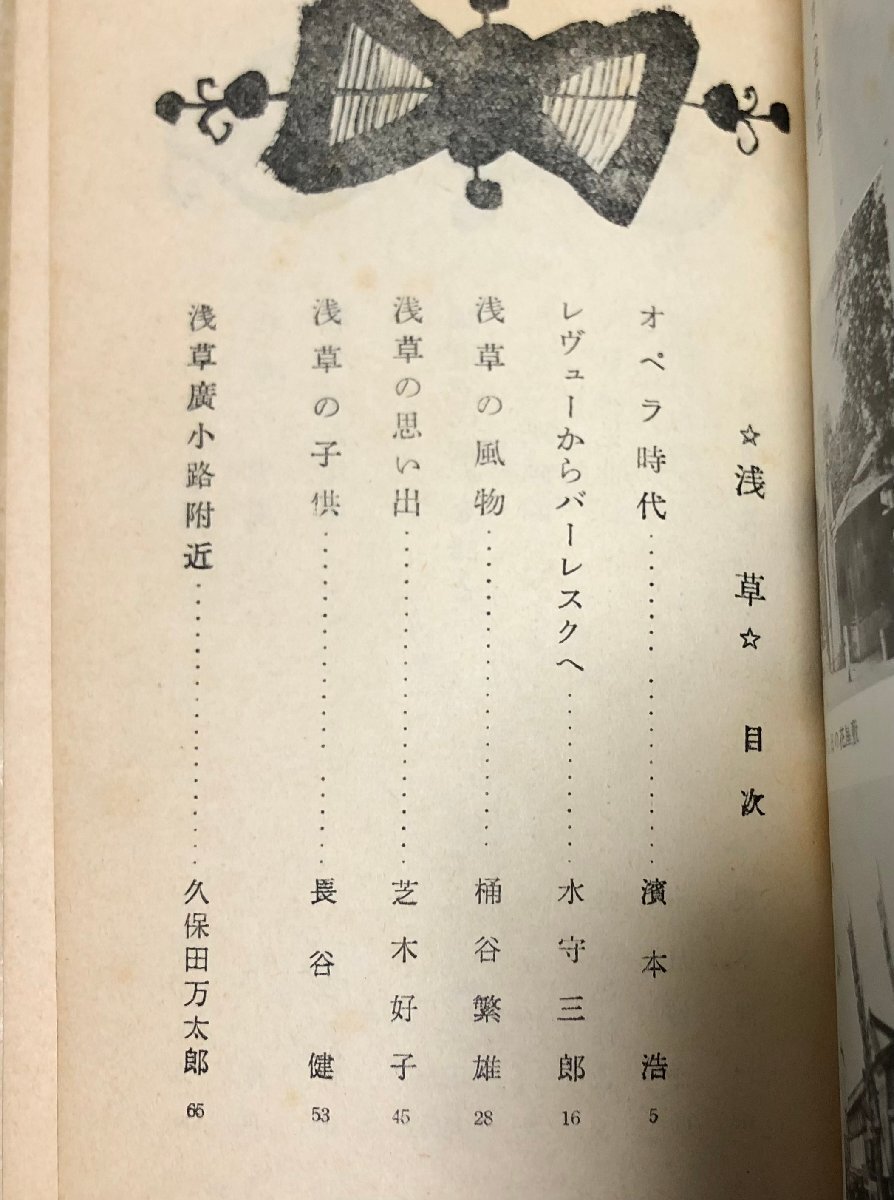 ☆浅草☆ 目次
オペラ時代…………………… 濱本浩 5
レヴューからバーレスクへ………… 水守三郎 16
浅草の風物…………………… 桶谷繁雄 28
浅草の思い出…………………… 芝木好子 45
浅草の子供…………………… 長谷健 53
浅草廣小路附近…………………… 久保田万太郎 65